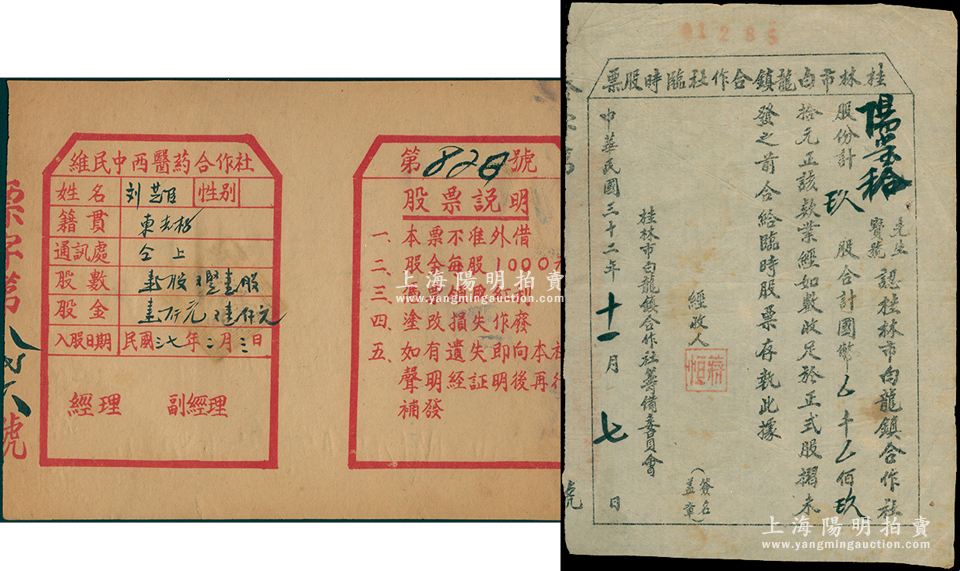 維民中西醫葯合作社
姓名 刘 性別
籍貫
通訊處 仝上
股數 壹股
股金 壹仟元
入股日期 民國三七年二月二日
經理 副經理
票字第 號
第820號
股票説明
一、本票不准外借
二、股金每股1000元
三、憑票領與紅利
四、塗改損失作廢
五、如有遺失即向本社
聲明經証明後再行
補發
01285
桂林市白龍鎮合作社臨時股票
先生
寶號
認桂林市白龍鎮合作社
股份計 玖 股合計國幣 千 佰玖
拾元正該款業經如數收足於正式股摺未
發之前合給臨時股票存執此據
經收人
(簽名
蓋章)
桂林市白龍鎮合作社籌備委員會
中華民國三十二年十一月七日
號
上海陽明拍賣
www.yangmingauction.com
上海陽明拍賣
www.yangmingauction.com